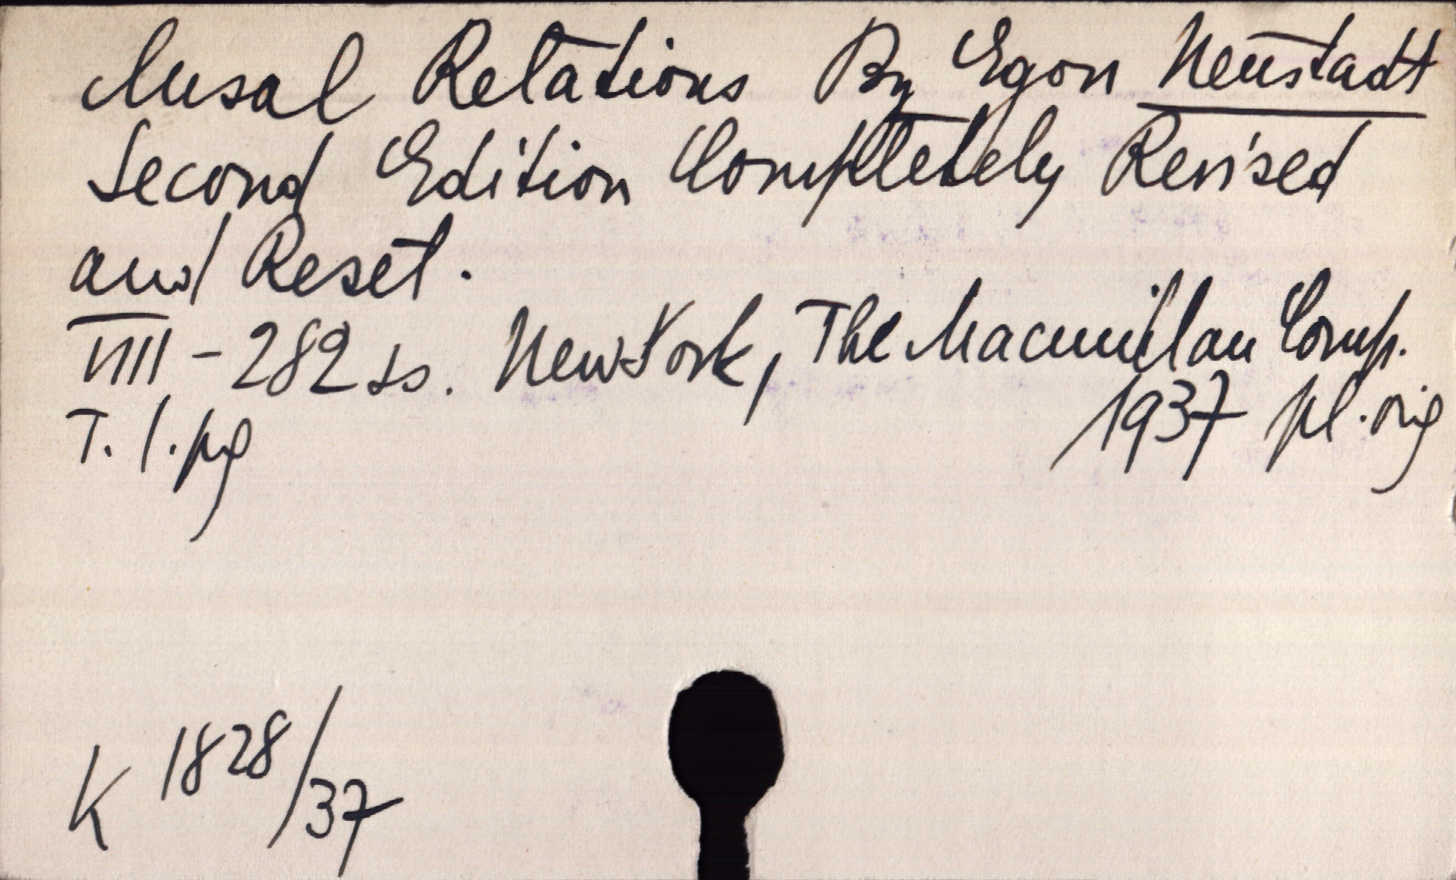 clusal Relations By Egon Neustadt
Second Edition Completely Revised
and Reset.
VIII - 282 ss. New York, The Macmillan Comp.
T. 1. pg 1937 pl. orig
K 1828/37